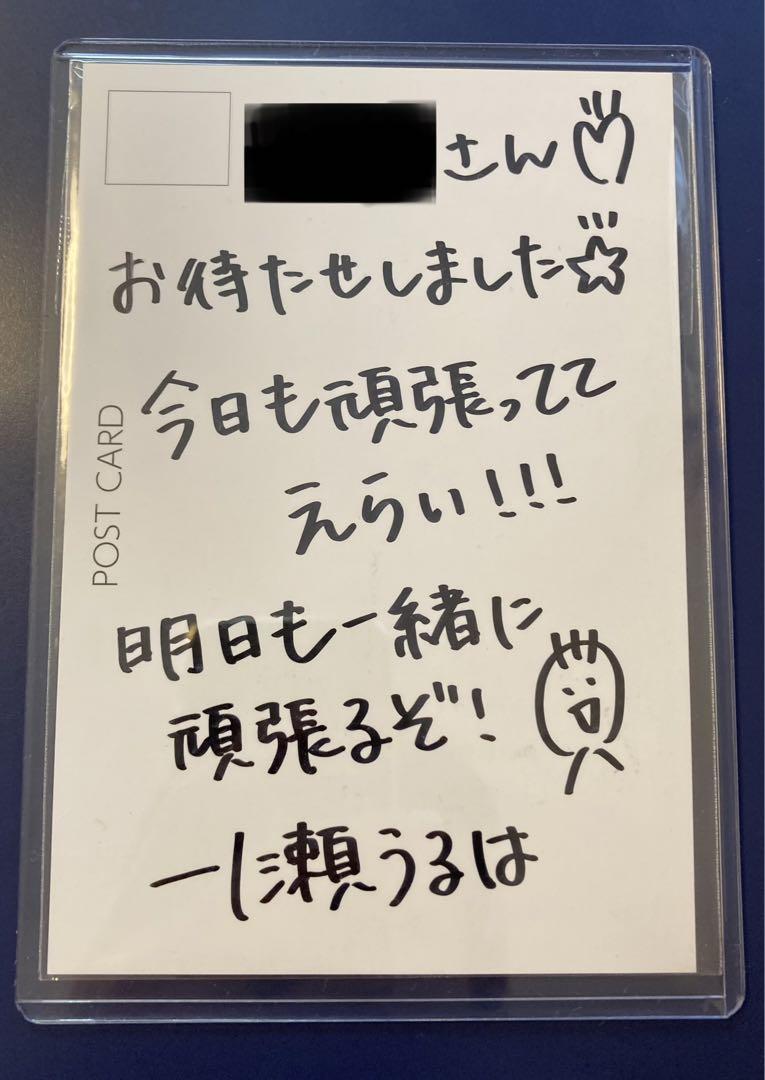 さん♡
お待たせしました☆
今日も頑張ってて
えらい!!!
明日も一緒に
頑張るぞ!
一ノ瀬うるは
POST CARD